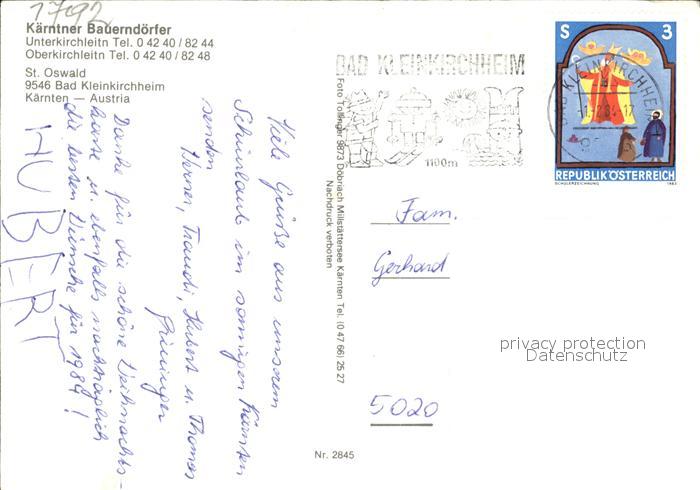 1792
Kärntner Bauerndörfer
Unterkirchleitn Tel. 0 42 40 / 82 44
Oberkirchleitn Tel. 0 42 40 / 82 48
St. Oswald
9546 Bad Kleinkirchheim
Kärnten — Austria
Viele Grüße aus unserem
Schiurlaub im sonnigen Kärnten
senden
Werner, Traudi, Hubert u. Thomas
Danke für die schöne Weihnachts-
karte u. ebenfalls nachträglich
die besten Wünsche für 1984!
HUBERT
Foto Tollinger 9873 Döbriach Millstättersee Kärnten Tel. (0 47 66) 25 27
Nachdruck verboten
BAD KLEINKIRCHHEIM
1100m
BAD KLEINKIRCHHEIM
S 3
REPUBLIK ÖSTERREICH
SCHÜLERZEICHNUNG 1983
Fam.
Gerhard
privacy protection
Datenschutz
5020
Nr. 2845